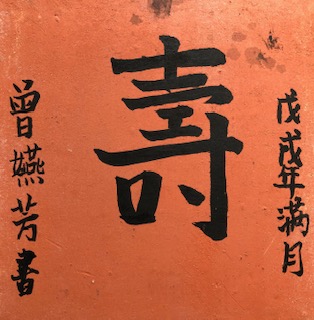 戊戌年滿月
壽
曾嬿芳書